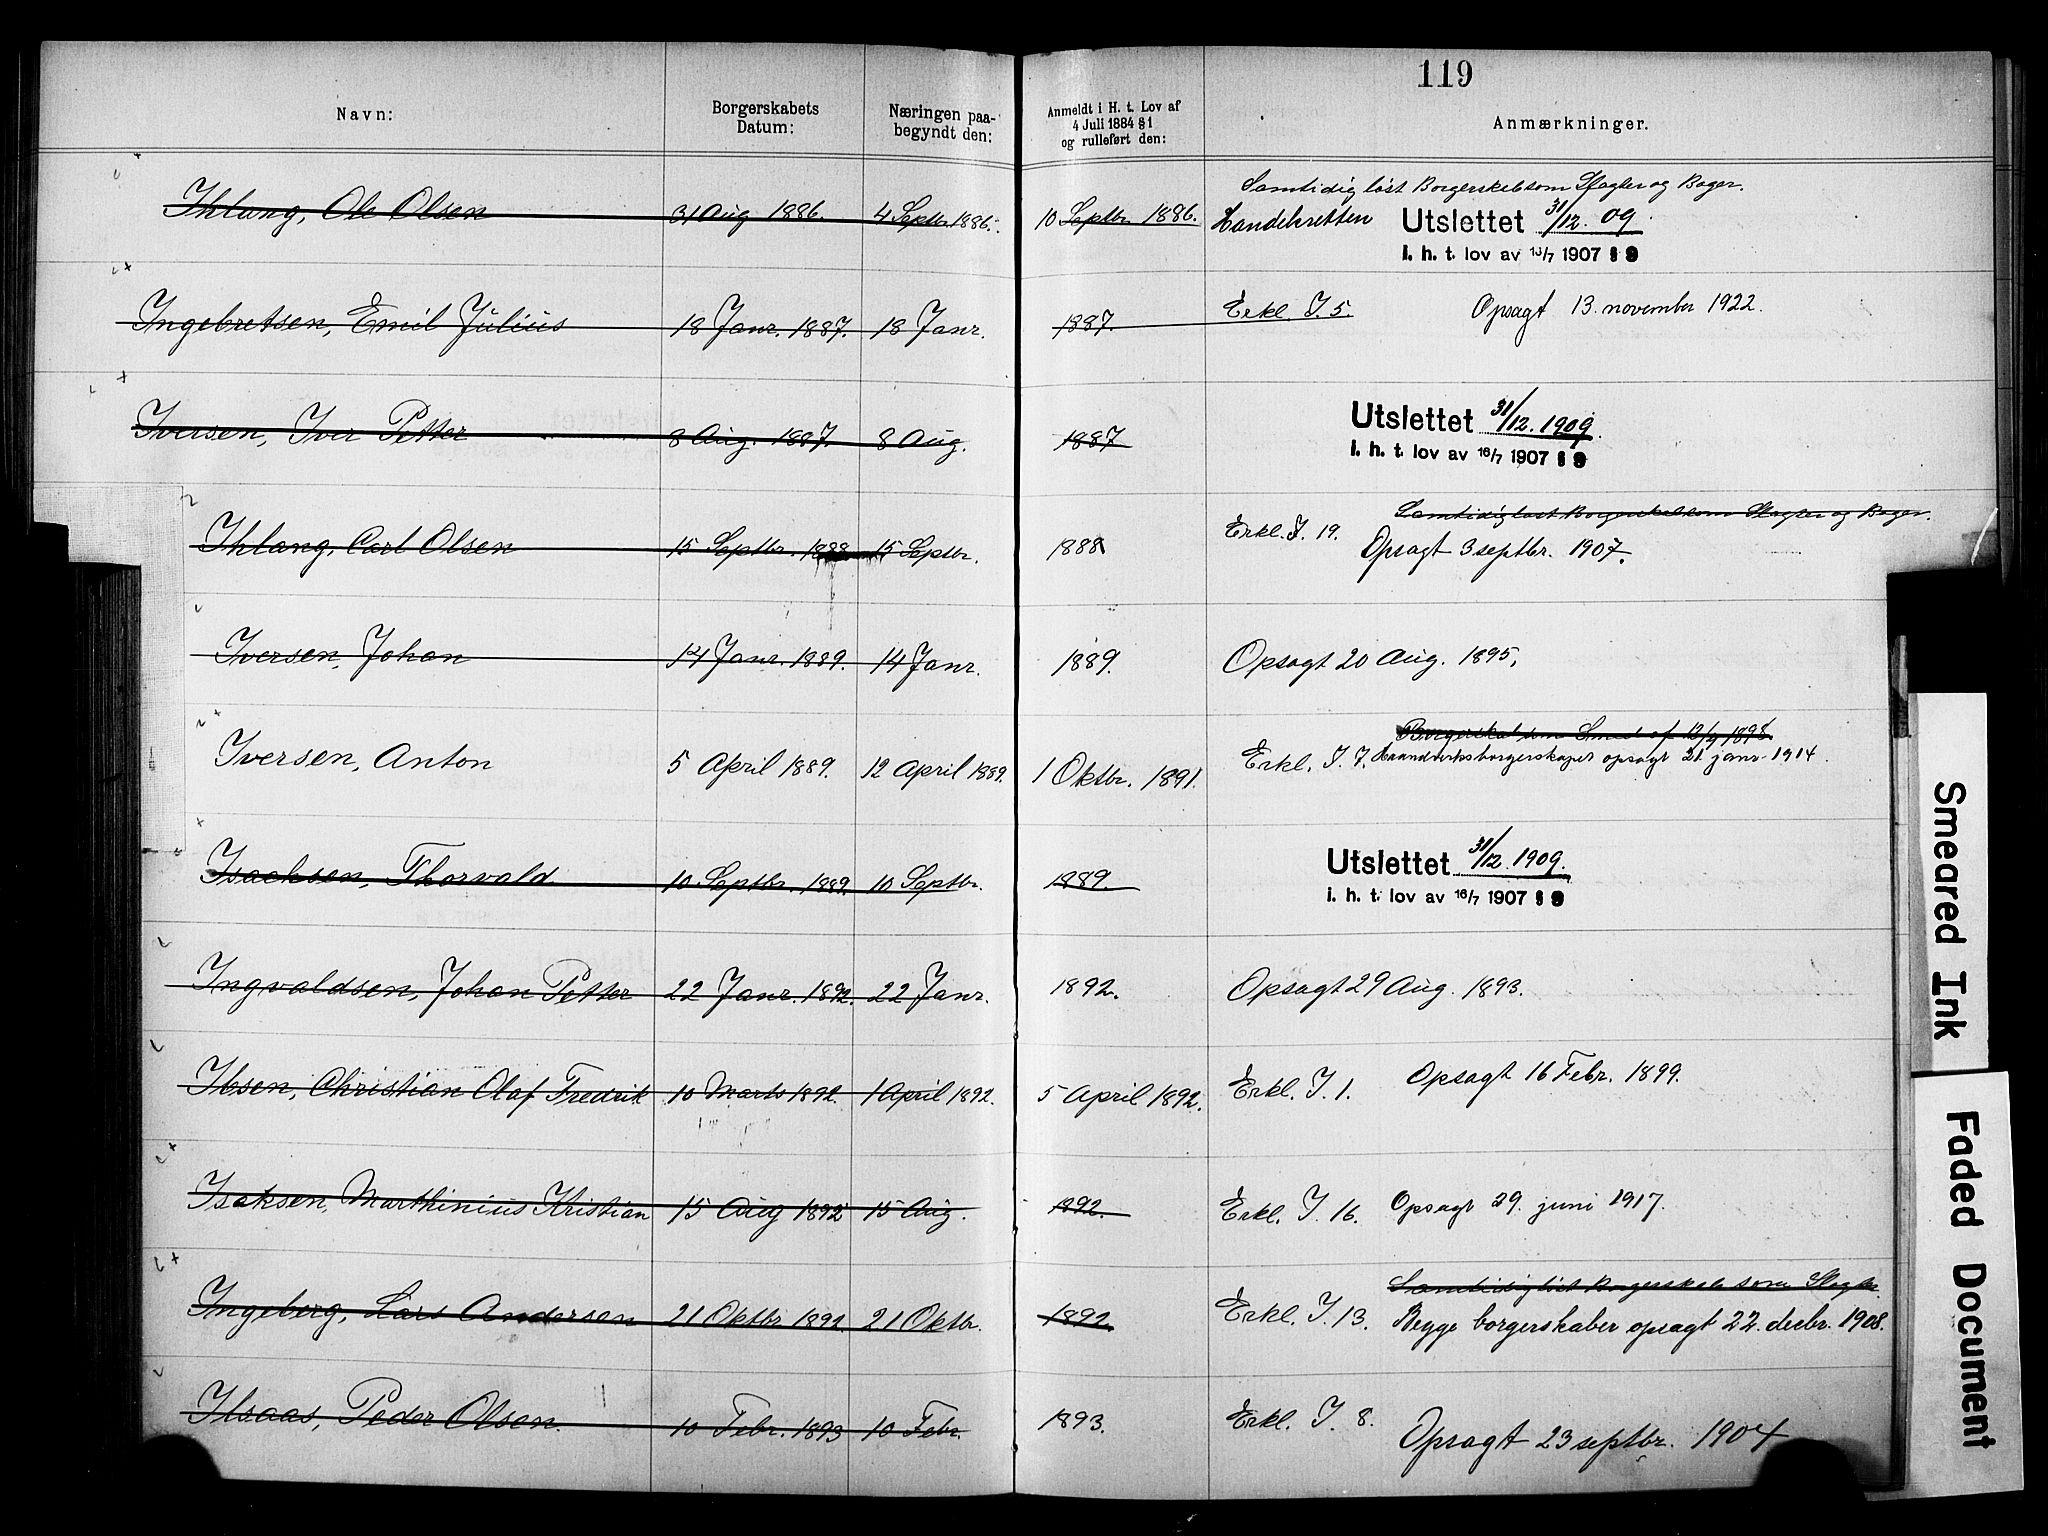 119
Navn: Borgerskabets Datum: Næringen paa-begyndt den: Anmeldt i H. t. Lov af 4 Juli 1884 § 1 og rulleført den: Anmærkninger.
Samtidig løst Borgerskab som Slagter og Bager.
Ihlang, Ole Olsen 31 Aug 1886. 4 Septbr 1886. 10 Septbr 1886. Handelsretten Utslettet 31/12. 09.
i. h. t. lov av 16/7 1907 § 9
Ingebretsen, Emil Julius 18 Janr. 1887. 18 Janr. 1887. Erkl. I. 5. Opsagt 13. november 1922.
Iversen, Iver Petter 8 Aug. 1887. 8 Aug. 1887 Utslettet 31/12. 1909.
i. h. t. lov av 16/7 1907 § 9
Samtidig løst Borgerskab som Slagter og Bager.
Ihlang, Carl Olsen 15 Septbr. 1888 15 Septbr. 1888 Erkl. I. 19. Opsagt 3 septbr. 1907.
Iversen, Johan 14 Janr. 1889. 14 Janr. 1889. Opsagt 20 Aug. 1895.
Borgerskab som Smed af 12/4 1898.
Iversen, Anton 5 April 1889. 12 April 1889. 1 Oktbr. 1891. Erkl. I. 7. Haandverksborgerskapet opsagt 21. janr. 1914.
Isacksen, Thorvald 10 Septbr. 1889. 10 Septbr. 1889. Utslettet 31/12. 1909.
i. h. t. lov av 16/7 1907 § 9
Ingvaldsen, Johan Petter 22 Janr. 1892. 22 Janr. 1892. Opsagt 29 Aug. 1893.
Ibsen, Christian Olaf Fredrik 10 Marts 1892. 1 April 1892. 5 April 1892. Erkl. I. 1. Opsagt 16 Febr. 1899.
Isaksen, Marthinius Kristian 15 Aug 1892 15 Aug. 1892. Erkl. I. 16. Opsagt 29. juni 1917.
Samtidig løst Borgerskab som Slagter.
Ingeberg, Lars Andersen 21 Oktbr 1892. 21 Oktbr. 1892. Erkl. I. 13. Begge borgerskaber opsagt 22. decbr. 1908.
Ilsaas, Peder Olsen. 10 Febr. 1893 10 Febr. 1893. Erkl. I. 8. Opsagt 23 septbr. 1904
Smeared Ink
Faded Document